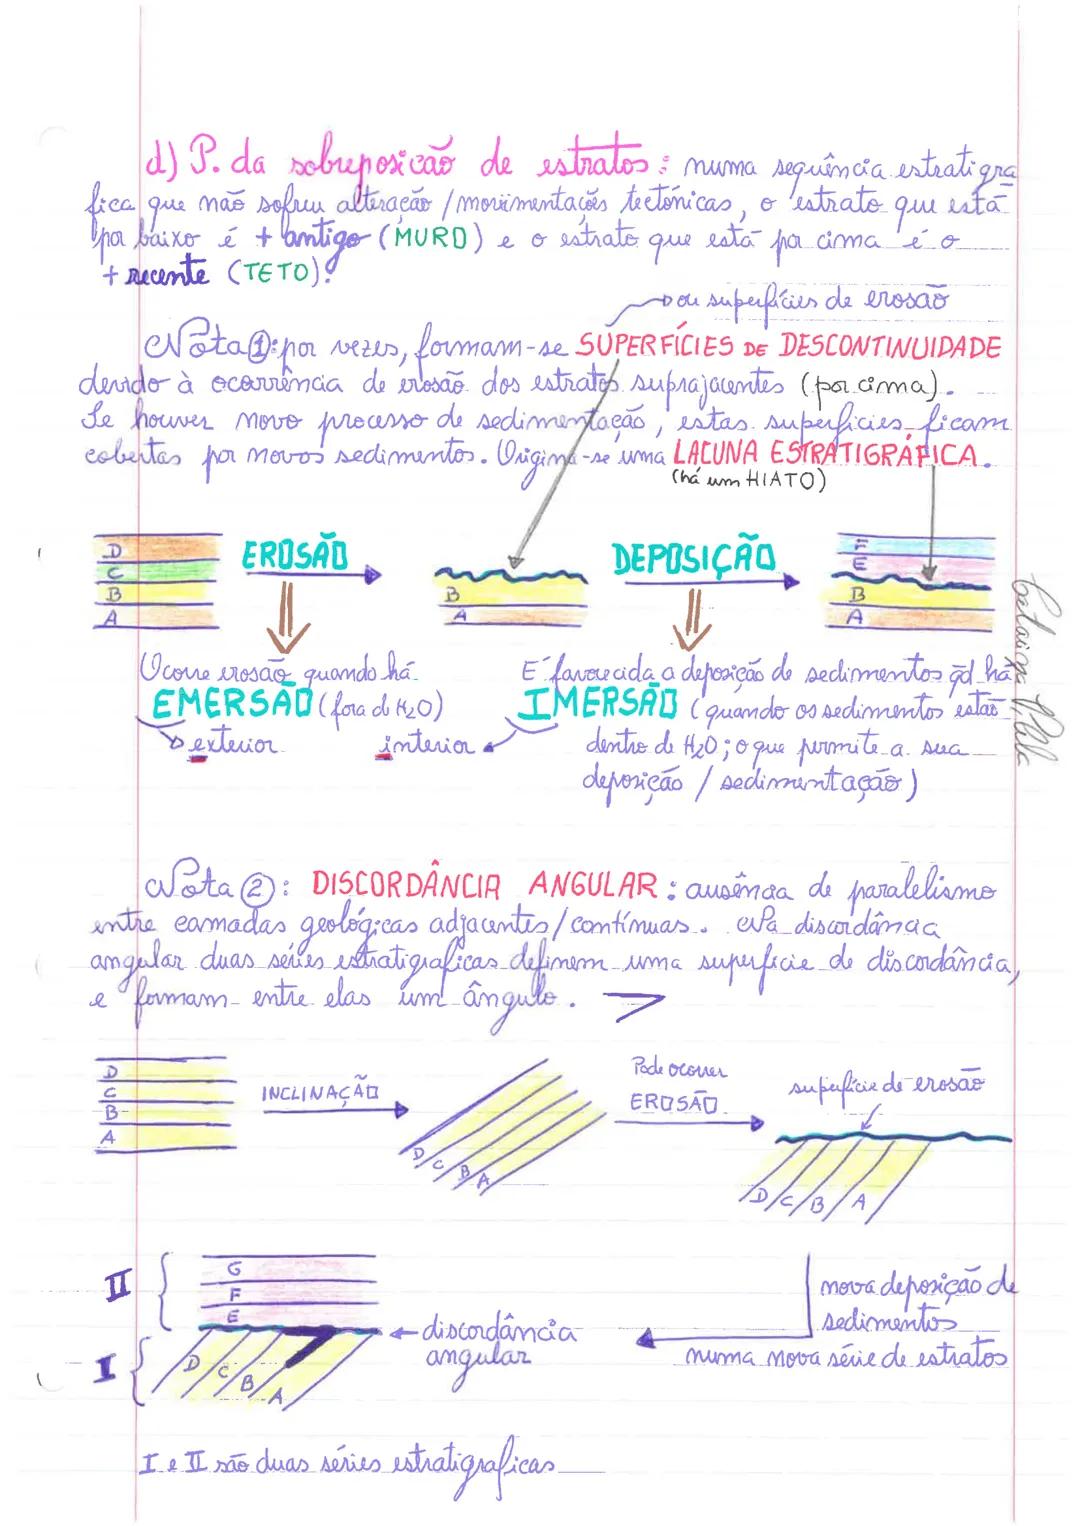 d) P. da sobreposicão de estratos: numa sequência estratigra
fica que não sofreu alteração / movimentações tectónicas, o estrato que está
por baixo é + antigo (MURO) e o estrato que está por cima é o
+ recente (TETO).
ou superfícies de erosão
Nota ①: por vezes, formam-se SUPERFÍCIES DE DESCONTINUIDADE
devido à ocorrência de erosão dos estratos suprajacentes (por cima).
Se houver novo processo de sedimentação, estas superfícies ficam
cobertas por novos sedimentos. Origina-se uma LACUNA ESTRATIGRÁFICA.
(há um HIATO)
D
C
B
A
EROSÃO
B
A
DEPOSIÇÃO
F
E
B
A
Ocorre erosão quando há
EMERSÃO (fora de H2O)
exterior
É favorecida a deposição de sedimentos qd há
IMERSÃO (quando os sedimentos estão
interior
dentro de H2O; o que permite a sua
deposição / sedimentação)
Nota ②: DISCORDÂNCIA ANGULAR: ausência de paralelismo
entre camadas geológicas adjacentes/contínuas. Na discordância
angular duas séries estratigraficas definem uma superfície de discordância,
e formam entre elas um ângulo.
D
C
B
A
INCLINAÇÃO
D C B A
Pode ocorrer
EROSÃO
superfície de erosão
D C B A
II
G
F
E
I
D C B A
discordância
angular
nova deposição de
sedimentos
numa nova série de estratos
I e II são duas séries estratigraficas